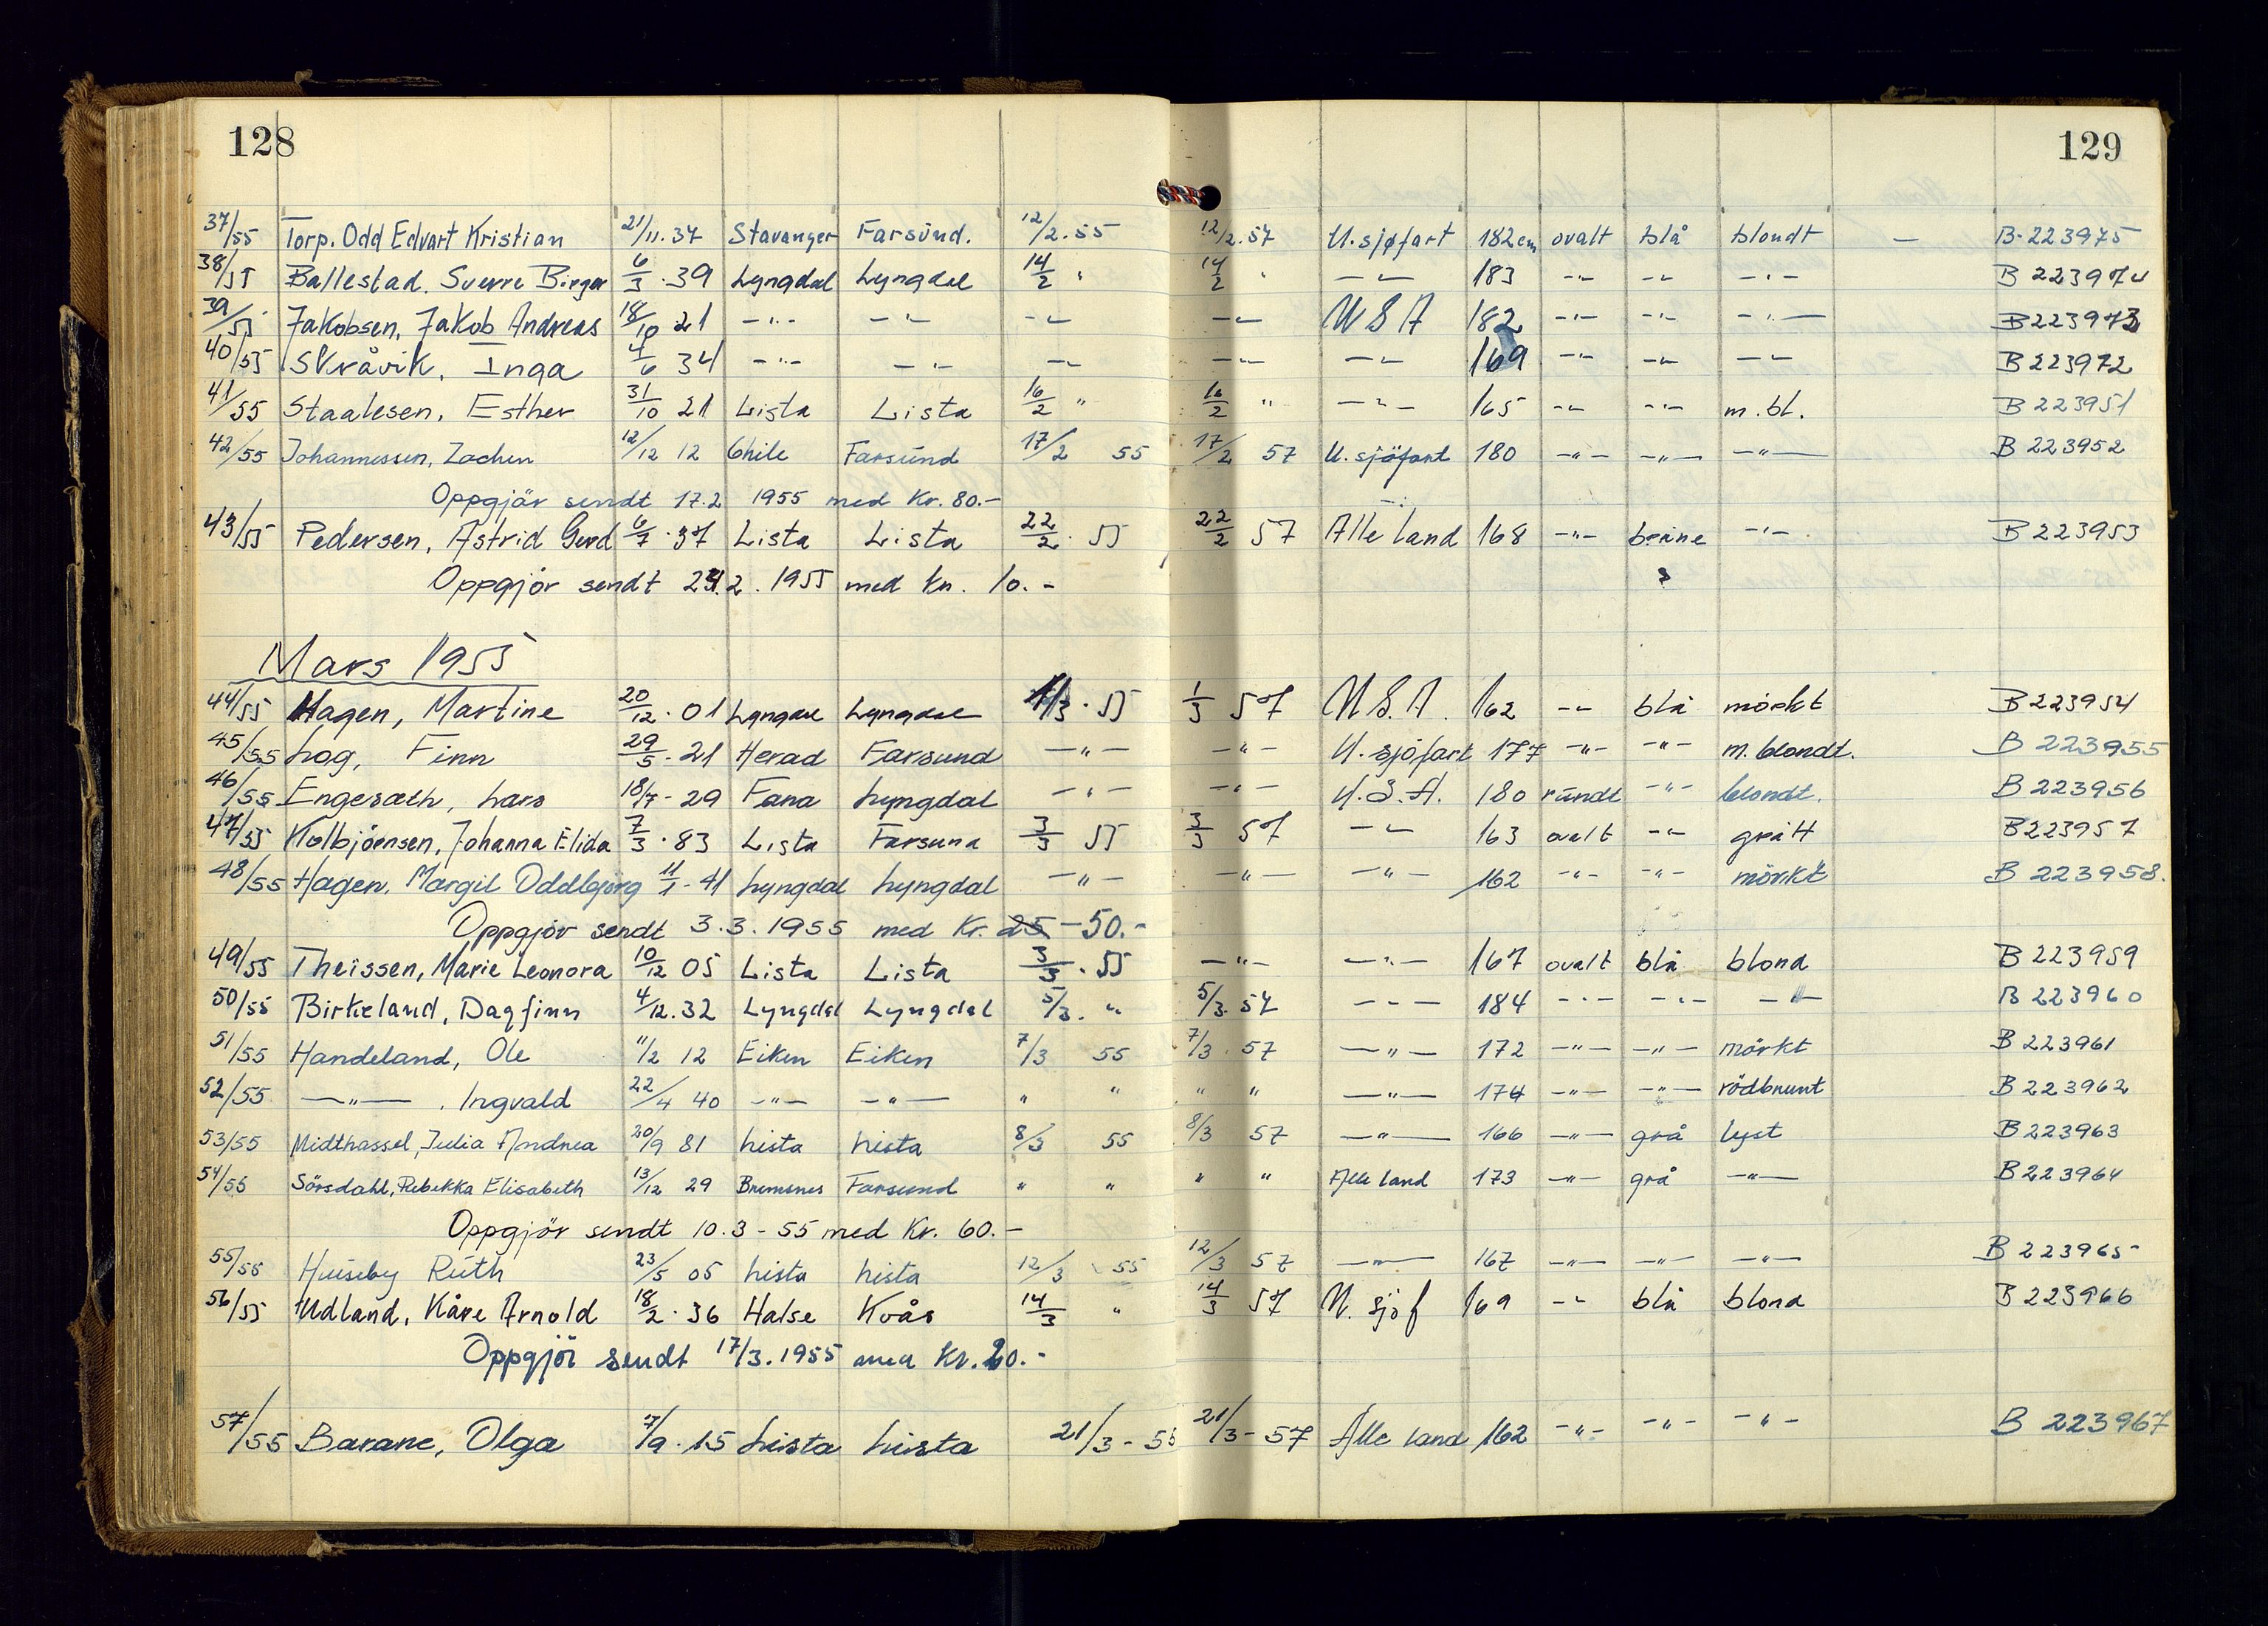 128
129
37/55 Torp. Odd Edvart Kristian 21/11.37 Stavanger Farsund. 12/2.55 12/2.57 U.sjøfart 182cm ovalt blå blondt — B-223975
38/55 Ballestad, Sverre Birger 6/3.39 Lyngdal Lyngdal 14/2 " 14/2 " —"— 183 -"- -"- -"- B 223974
39/55 Jakobsen, Jakob Andreas 18/10 21 -"- -"- -"- -"- USA 182 -"- -"- -"- B 223973
40/55 Skråvik, Inga 4/6 34 -"- -"- -"- -"- -"- 169 -"- -"- -"- B 223972
41/55 Staalesen, Esther 31/10 21 Lista Lista 16/2 " 16/2 " -"- 165 -"- -"- m.bl. B 223951
42/55 Johannessen, Zachen 12/12 12 Chile Farsund 17/2 55 17/2 57 U.sjöfart 180 -"- -"- -"- B 223952
Oppgjör sendt 17.2 1955 med Kr. 80.-
43/55 Pedersen, Astrid Gerd 6/7.37 Lista Lista 22/2.55 22/2 57 Alle land 168 -"- brune -"- B 223953
Oppgjör sendt 24.2.1955 med kr. 10.-
Mars 1955
44/55 Hagen, Martine 20/12.01 Lyngdal Lyngdal 1/3.55 1/3 57 U.S.A. 162 -"- blå mörkt B 223954
45/55 Log, Finn 29/5.21 Herad Farsund -"- -"- U.sjöfart 177 -"- -"- m.blondt. B 223955
46/55 Engesæth, Lars 18/7-29 Fana Lyngdal -"- -"- U.S.A. 180 rundt -"- blondt. B 223956
47/55 Kolbjörnsen, Johanna Elida 7/3.83 Lista Farsund 3/3 55 3/3 57 -"- 163 ovalt -"- grått B 223957
48/55 Hagen, Margit Oddbjörg 11/1-41 Lyngdal Lyngdal -"- -"- -"- 162 -"- -"- mörkt B 223958.
Oppgjör sendt 3.3.1955 med Kr. 25 -50.-
49/55 Theissen, Marie Leonora 10/12 05 Lista Lista 3/3.55 -"- -"- 167 ovalt blå blond B 223959
50/55 Birkeland, Dagfinn 4/12.32 Lyngdal Lyngdal 5/3. " 5/3.57 -"- 184 -"- -"- -"- B 223960
51/55 Handeland, Ole 11/2 12 Eiken Eiken 7/3 55 7/3 57 -"- 172 -"- -"- mörkt B 223961
52/55 -"- . Ingvald 22/4 40 -"- -"- " " " " -"- 174 -"- -"- rödbrunt B 223962
53/55 Midthassel, Julia Andrea 20/9 81 Lista Lista 8/3 55 8/3 57 -"- 166 -"- grå lyst B 223963
54/55 Sörsdahl, Rebekka Elisabeth 13/12 29 Bremsnes Farsund " " " " Alle land 173 -"- grå -"- B 223964
Oppgjör sendt 10.3-55 med Kr. 60.-
55/55 Huseby Ruth 23/5 05 Lista Lista 12/3 55 12/3 57 -"- 167 -"- -"- -"- B 223965
56/55 Udland, Kåre Arnold 18/2.36 Halse Kvås 14/3 " 14/3 57 U. sjöf 169 -"- blå blond B 223966
Oppgjör sendt 17/3.1955 med Kr. 20.-
57/55 Barane, Olga 7/9.15 Lista Lista 21/3-55 21/3-57 Alle land 162 -"- -"- -"- B 223967